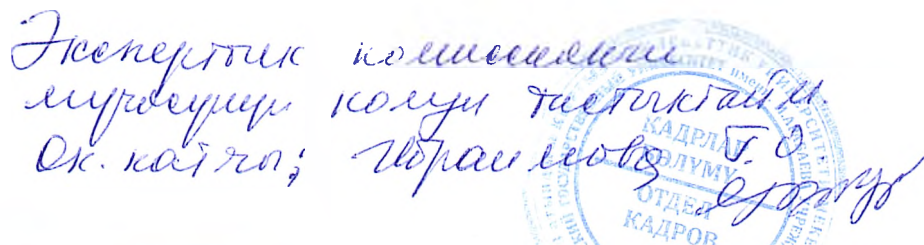 Эксперттик комиссиянын
мүчөсүнүн колун тастыктайм
Ок. катчы: Ибраимова Г.О
КАДРЛАР
БӨЛҮМҮ
ОТДЕЛ
КАДРОВ